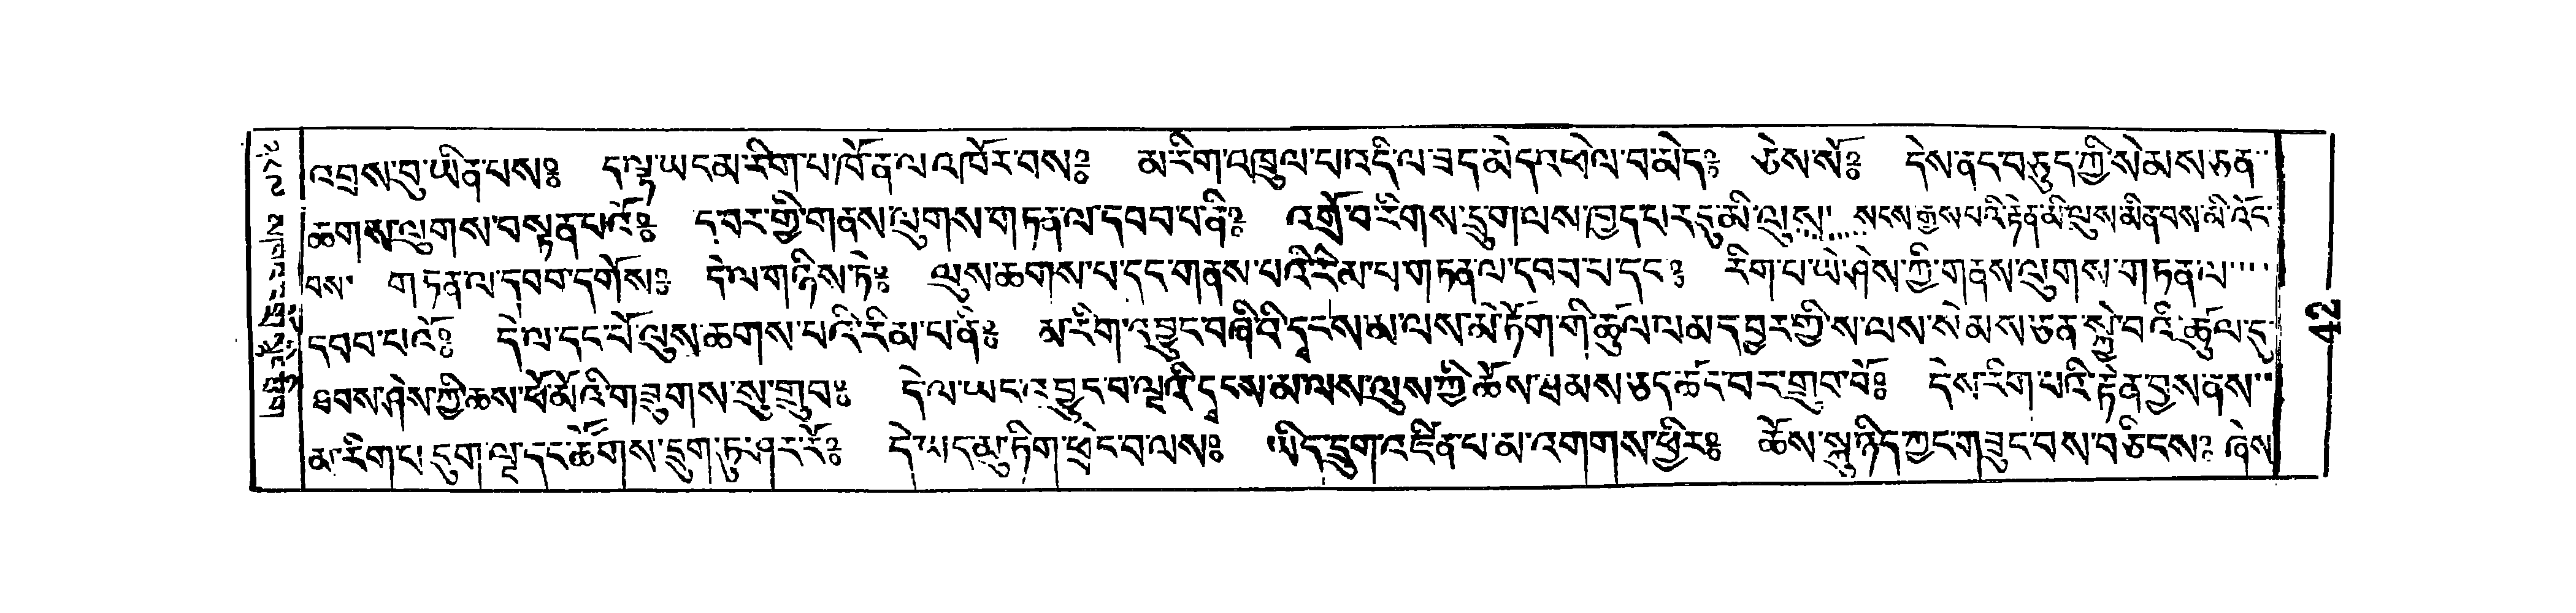 འབྲས་བུ་ཡིན་པས༔ ད་ལྟ་ཡང་མ་རིག་པ་ཁོ་ན་ལ་འཁོར་བས༔ མ་རིག་འཁྲུལ་པ་འདི་ལ་ཟད་མེད་འཕེལ་བ་མེད༔ ཅེས་སོ༔ དེས་ནང་བཅུད་ཀྱི་སེམས་ཅན་
ཆགས་ལུགས་བསྟན་པའོ༔ ད་བར་གྱི་གནས་ལུགས་གཏན་ལ་དབབ་པ་ནི༔ འགྲོ་བ་རིགས་དྲུག་ལས་ཁྱད་པར་དུ་མི་ལུས་ སངས་རྒྱས་པའི་རྟེན་མི་ལུས་མིན་བས་མི་འོང་
བས་ གཏན་ལ་དབབ་དགོས༔ དེ་ལ་གཉིས་ཏེ༔ ལུས་ཆགས་པ་དང་གནས་པའི་རིམ་པ་གཏན་ལ་དབབ་པ་དང༔ རིག་པ་ཡེ་ཤེས་ཀྱི་གནས་ལུགས་གཏན་ལ་
དབབ་པའོ༔ དེ་ལ་དང་པོ་ལུས་ཆགས་པའི་རིམ་པ་ནི༔ མ་རིག་འབྱུང་བཞི་འི་དྭངས་མ་ལས་མེ་ཏོག་གི་ཚུལ་ལམ་དབྱར་གྱིས་ལས་སེམས་ཅན་སྐྱེ་བའི་ཚུལ་དུ་
ཐབས་ཤེས་ཀྱི་ཆས་ཕོ་མོའི་གཟུགས་སུ་གྲུབ༔ དེ་ལ་ཡང་འབྱུང་བ་ལྔའི་དྭངས་མ་ལས་ལུས་ཀྱི་ཆོས་ཐམས་ཅད་ཚང་བར་གྲུབ་བོ༔ དེས་རིག་པའི་རྟེན་བྱས་ནས་
མ་རིག་པ་དུག་ལྔ་དང་ཚོགས་དྲུག་ཏུ་ཤར་རོ༔ དེ་ཡང་མུ་ཏིག་ཕྲེང་བ་ལས༔ ཡིད་དྲུག་འཛིན་པ་མ་འགགས་ཕྱིར༔ ཆོས་སྐུ་ཉིད་ཀྱང་གཟུང་བས་བཅིངས༔ ཞེས